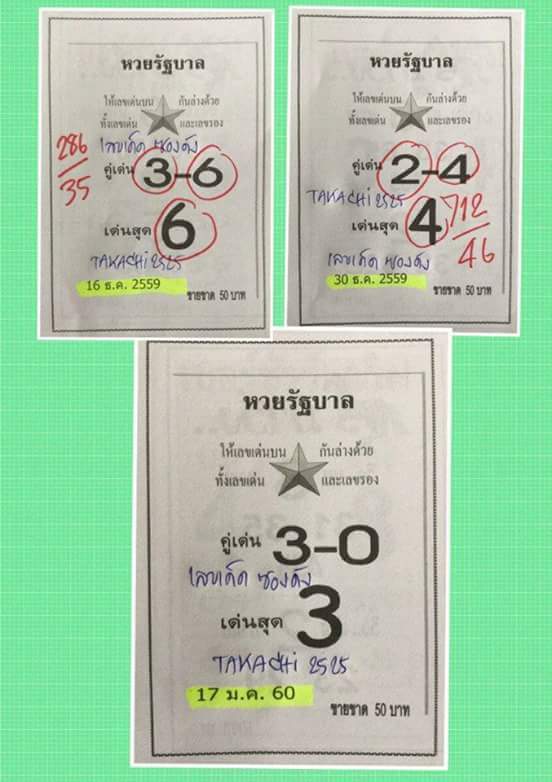 หวยรัฐบาล
ให้เลขเด่นบน กันล่างด้วย
ทั้งเลขเด่น และเลขรอง
เลขเด็ด ซองดัง
286
35
คู่เด่น 3-6
เด่นสุด 6
TAKACHI 2525
16 ธ.ค. 2559
ขายขาด 50 บาท
หวยรัฐบาล
ให้เลขเด่นบน กันล่างด้วย
ทั้งเลขเด่น และเลขรอง
คู่เด่น 2-4
TAKACHI 2525
เด่นสุด 4
712
46
เลขเด็ด ซองดัง
30 ธ.ค. 2559
ขายขาด 50 บาท
หวยรัฐบาล
ให้เลขเด่นบน กันล่างด้วย
ทั้งเลขเด่น และเลขรอง
คู่เด่น 3-0
เลขเด็ด ซองดัง
เด่นสุด 3
TAKACHi 2525
17 ม.ค. 60
ขายขาด 50 บาท